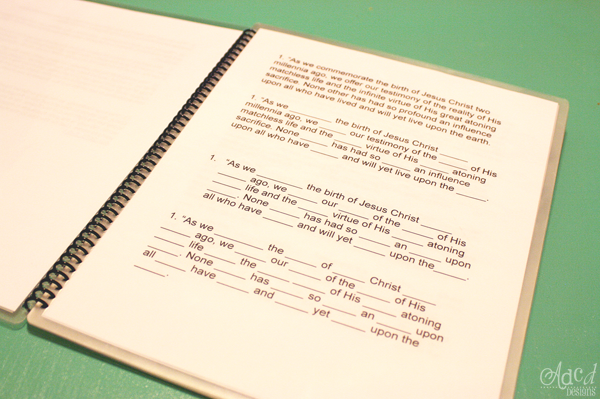 1. "As we commemorate the birth of Jesus Christ two
millennia ago, we offer our testimony of the reality of His
matchless life and the infinite virtue of His great atoning
sacrifice. None other has had so profound an influence
upon all who have lived and will yet live upon the earth.
1. "As we ______ the birth of Jesus Christ _____
millennia ago, we _____ our testimony of the _____ of His
matchless life and the _____ virtue of His _____ atoning
sacrifice. None _____ has had so _____ an influence
upon all who have _____ and will yet live upon the _____.
1. "As we_________ the birth of Jesus Christ _____
_____ ago, we _____ our _____ of the _____ of His
_____ life and the _____ virtue of His _____ atoning
_____. None _____ has had so _____ an _____ upon
all who have _____ and will yet _____ upon the_____.
1. "As we _________ the _____ of _____ Christ _____
_____ ago, we _____ our _____ of the _____ of His
_____ life _____ the _____ _____ of His _____ atoning
_____. None _____ has _____ so _____ an _____ upon
all _____ have _____ and _____ yet _____ upon the
_____.
Adcd
Designs